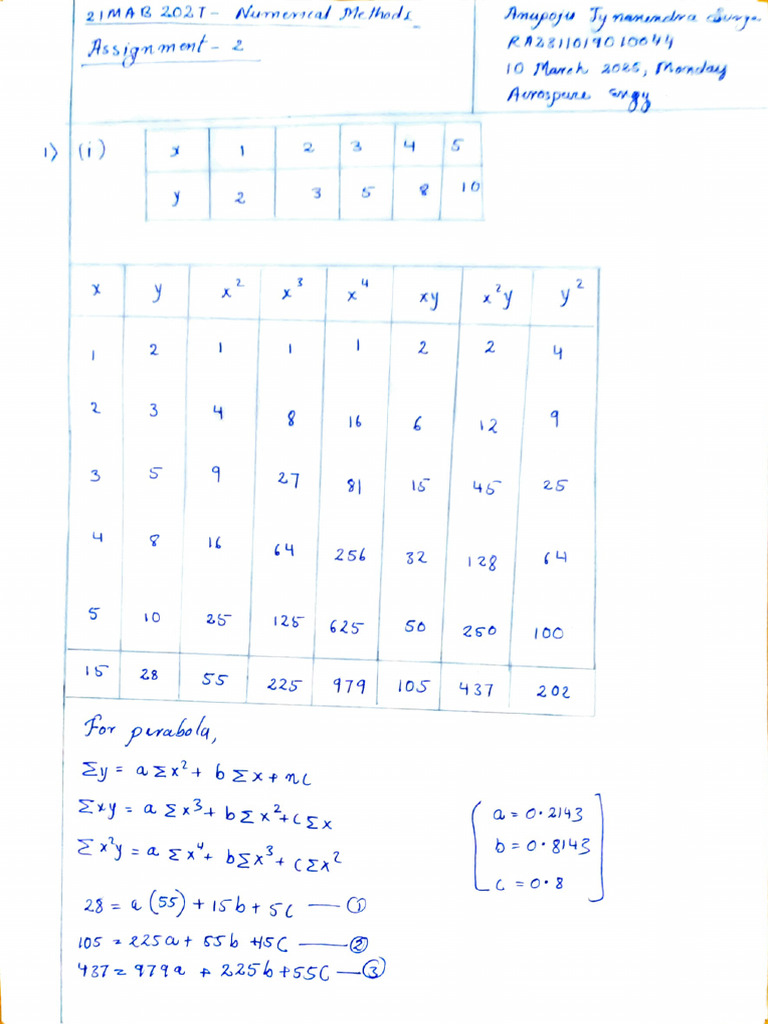 21MAB 202T - Numerical Methods
Assignment - 2
RA2311019010044
10 March 2025, Monday
Aerospace Engg
1) (i)
x 1 2 3 4 5
y 2 3 5 8 10
x y x² x³ x⁴ xy x²y y²
1 2 1 1 1 2 2 4
2 3 4 8 16 6 12 9
3 5 9 27 81 15 45 25
4 8 16 64 256 32 128 64
5 10 25 125 625 50 250 100
15 28 55 225 979 105 437 202
For parabola,
Σy = aΣx² + bΣx + nc
Σxy = aΣx³ + bΣx² + cΣx
Σx²y = aΣx⁴ + bΣx³ + cΣx²
a = 0.2143
b = 0.8143
c = 0.8
28 = a(55) + 15b + 5c — ①
105 = 225a + 55b + 15c — ②
437 = 979a + 225b + 55c — ③